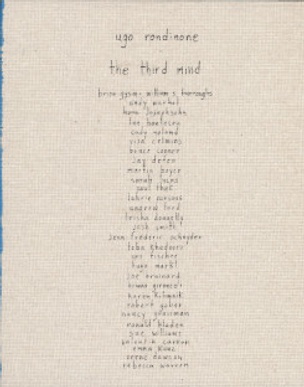 ugo rondinone
the third mind
brion gysin william s. burroughs
andy warhol
hans josephsohn
lee bontecou
cady noland
vija celmins
bruce conner
jay defeo
martin boyce
sarah lucas
paul thek
laurie parsons
andrew lord
trisha donnelly
josh smith
jean-frederic schnyder
toba khedoori
urs fischer
hugo markl
joe brainard
bruno gironcoli
karen kilimnik
robert gober
nancy grossman
ronald bladen
sue williams
valentin carron
emma kunz
verne dawson
rebecca warren